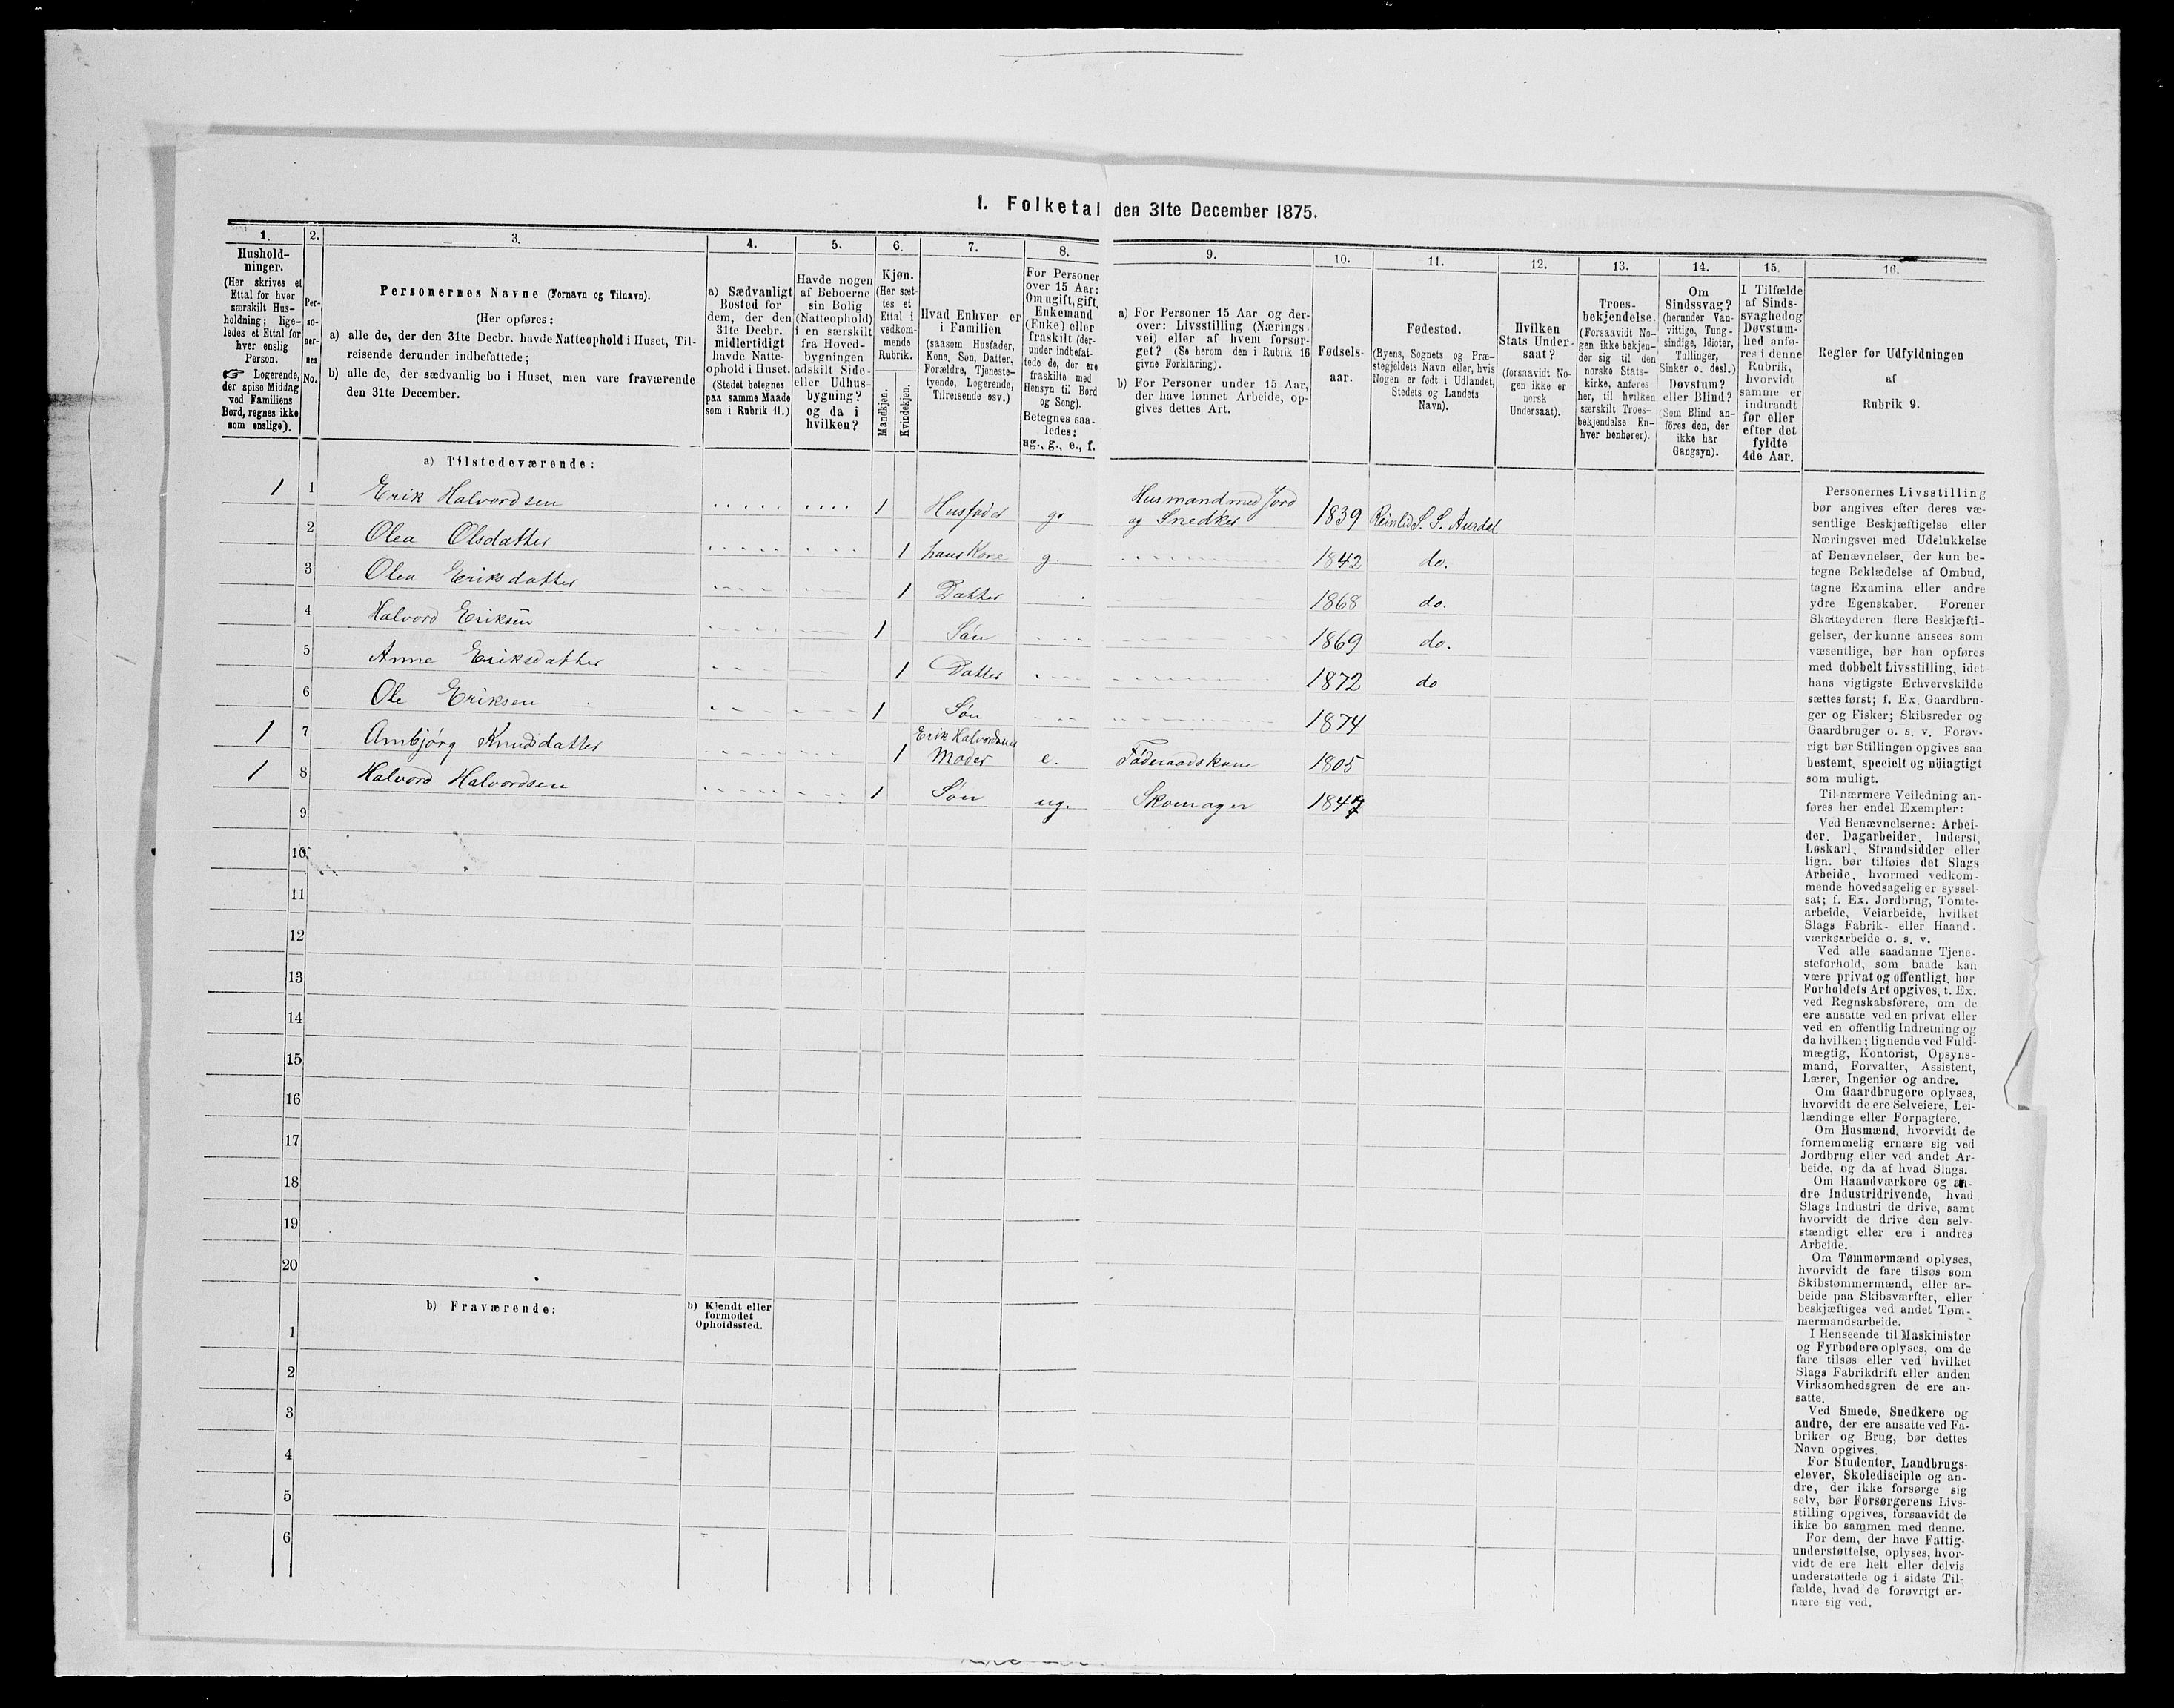 1. Folketal den 31te December 1875.
1.
Hushold-
ninger.
(Her skrives et
Ettal for hver
særskilt Hus-
holdning; lige-
ledes et Ettal for
hver enslig
Person.
☞ Logerende,
der spise Middag
ved Familiens
Bord, regnes ikke
som enslige).
2.
Per-
so-
ner-
nes
No.
3.
Personernes Navne (Fornavn og Tilnavn).
(Her opføres:
a) alle de, der den 31te Decbr. havde Natteophold i Huset, Til-
reisende derunder indbefattede;
b) alle de, der sædvanlig bo i Huset, men vare fraværende
den 31te December.
4.
a) Sædvanligt
Bosted for
dem, der den
31te Decbr.
midlertidigt
havde Natte-
ophold i Huset.
(Stedet betegnes
paa samme Maade
som i Rubrik 11.)
5.
Havde nogen
af Beboerne
sin Bolig
(Natteophold)
i en særskilt
fra Hoved-
bygningen
adskilt Side-
eller Udhus-
bygning?
og da i
hvilken?
6.
Kjøn.
(Her sæt-
tes et
Ettal i
vedkom-
mende
Rubrik.
Mandkjøn.
Kvindekjøn.
7.
Hvad Enhver er
i Familien
(saasom Husfader,
Kone, Søn, Datter,
Forældre, Tjeneste-
tyende, Logerende,
Tilreisende osv.)
8.
For Personer
over 15 Aar:
Om ugift, gift,
Enkemand
(Enke) eller
fraskilt (der-
under indbefat-
tede de, der ere
fraskilte med
Hensyn til Bord
og Seng).
Betegnes saa-
ledes:
ug., g., e., f.
9.
a) For Personer 15 Aar og der-
over: Livsstilling (Nærings-
vei) eller af hvem forsør-
get? (Se herom den i Rubrik 16
givne Forklaring).
b) For Personer under 15 Aar,
der have lønnet Arbeide, op-
gives dettes Art.
10.
Fødsels-
aar.
11.
Fødested.
(Byens, Sognets og Præ-
stegjeldets Navn eller, hvis
Nogen er født i Udlandet,
Stedets og Landets
Navn).
12.
Hvilken
Stats Under-
saat?
(forsaavidt No-
gen ikke er
norsk
Undersaat).
13.
Troes-
bekjendelse.
(Forsaavidt No-
gen ikke bekjen-
der sig til den
norske Stats-
kirke, anføres
her, til hvilken
særskilt Troes-
bekjendelse En-
hver henhører).
14.
Om
Sindssvag?
(herunder Van-
vittige, Tung-
sindige, Idioter,
Tullinger,
Sinker o. desl.)
Døvstum?
eller Blind?
(Som Blind an-
føres den, der
ikke har
Gangsyn).
15.
I Tilfælde
af Sinds-
svaghed og
Døvstum-
hed anfø-
res i denne
Rubrik,
hvorvidt
samme er
indtraadt
før eller
efter det
fyldte
4de Aar.
16.
Regler for Udfyldningen
af
Rubrik 9.
a) Tilstedeværende:
1 1 Erik Halvordsen 1 Husfader g. Husmand med Jord
og Snedker 1839 Reinlid S. S. Aurdal
2 Olea Olsdatter 1 hans Kone g. 1842 do.
3 Olea Eriksdatter 1 Datter 1868 do.
4 Halvord Eriksen 1 Søn 1869 do.
5 Anne Eriksdatter 1 Datter 1872 do
6 Ole Eriksen 1 Søn 1874
1 7 Ambjørg Knudsdatter 1 Erik Halvordsens
Moder e. Føderaadskone 1805
1 8 Halvord Halvordsen 1 Søn ug. Skomager 1847
9
10
11
12
13
14
15
16
17
18
19
20
b) Fraværende:
b) Kjendt eller
formodet
Opholdssted.
1
2
3
4
5
6
Personernes Livsstilling
bør angives efter deres væ-
sentlige Beskjæftigelse eller
Næringsvei med Udelukkelse
af Benævnelser, der kun be-
tegne Beklædelse af Ombud,
tagne Examina eller andre
ydre Egenskaber. Forener
Skatteyderen flere Beskjæfti-
gelser, der kunne ansees som
væsentlige, bør han opføres
med dobbelt Livsstilling, idet
hans vigtigste Erhvervskilde
sættes først; f. Ex. Gaardbru-
ger og Fisker; Skibsreder og
Gaardbruger o. s. v. Forøv-
rigt bør Stillingen opgives saa
bestemt, specielt og nöiagtigt
som muligt.
Til nærmere Veiledning an-
føres her endel Exempler:
Ved Benævnelserne: Arbei-
der, Dagarbeider, Inderst,
Løskarl, Strandsidder eller
lign. bør tilføies det Slags
Arbeide, hvormed vedkom-
mende hovedsagelig er syssel-
sat; f. Ex. Jordbrug, Tomte-
arbeide, Veiarbeide, hvilket
Slags Fabrik- eller Haand-
værksarbeide o. s. v.
Ved alle saadanne Tjene-
steforhold, som baade kan
være privat og offentligt, bør
Forholdets Art opgives, t. Ex.
ved Regnskabsførere, om de
ere ansatte ved en privat eller
ved en offentlig Indretning og
da hvilken; lignende ved Fuld-
mægtig, Kontorist, Opsyns-
mand, Forvalter, Assistent,
Lærer, Ingeniør og andre.
Om Gaardbrugere oplyses,
hvorvidt de ere Selveiere, Lei-
lændinge eller Forpagtere.
Om Husmænd, hvorvidt de
fornemmelig ernære sig ved
Jordbrug eller ved andet Ar-
beide, og da af hvad Slags.
Om Haandværkere og an-
dre Industridrivende, hvad
Slags Industri de drive, samt
hvorvidt de drive den selv-
stændigt eller ere i andres
Arbeide.
Om Tømmermænd oplyses,
hvorvidt de fare tilsøs som
Skibstømmermænd, eller ar-
beide paa Skibsværfter, eller
beskjæftiges ved andet Tøm-
mermandsarbeide.
I Henseende til Maskinister
og Fyrbødere oplyses, om de
fare tilsøs eller ved hvilket
Slags Fabrikdrift eller anden
Virksomhedsgren de ere an-
satte.
Ved Smede, Snedkere og
andre, der ere ansatte ved Fa-
briker og Brug, bør dettes
Navn opgives.
For Studenter, Landbrugs-
elever, Skoledisciple og an-
dre, der ikke forsørge sig
selv, bør Forsørgerens Livs-
stilling opgives, forsaavidt de
ikke bo sammen med denne.
For dem, der have Fattig-
understøttelse, oplyses, hvor-
vidt de ere helt eller delvis
understøttede og i sidste Til-
fælde, hvad de forøvrigt er-
nære sig ved.